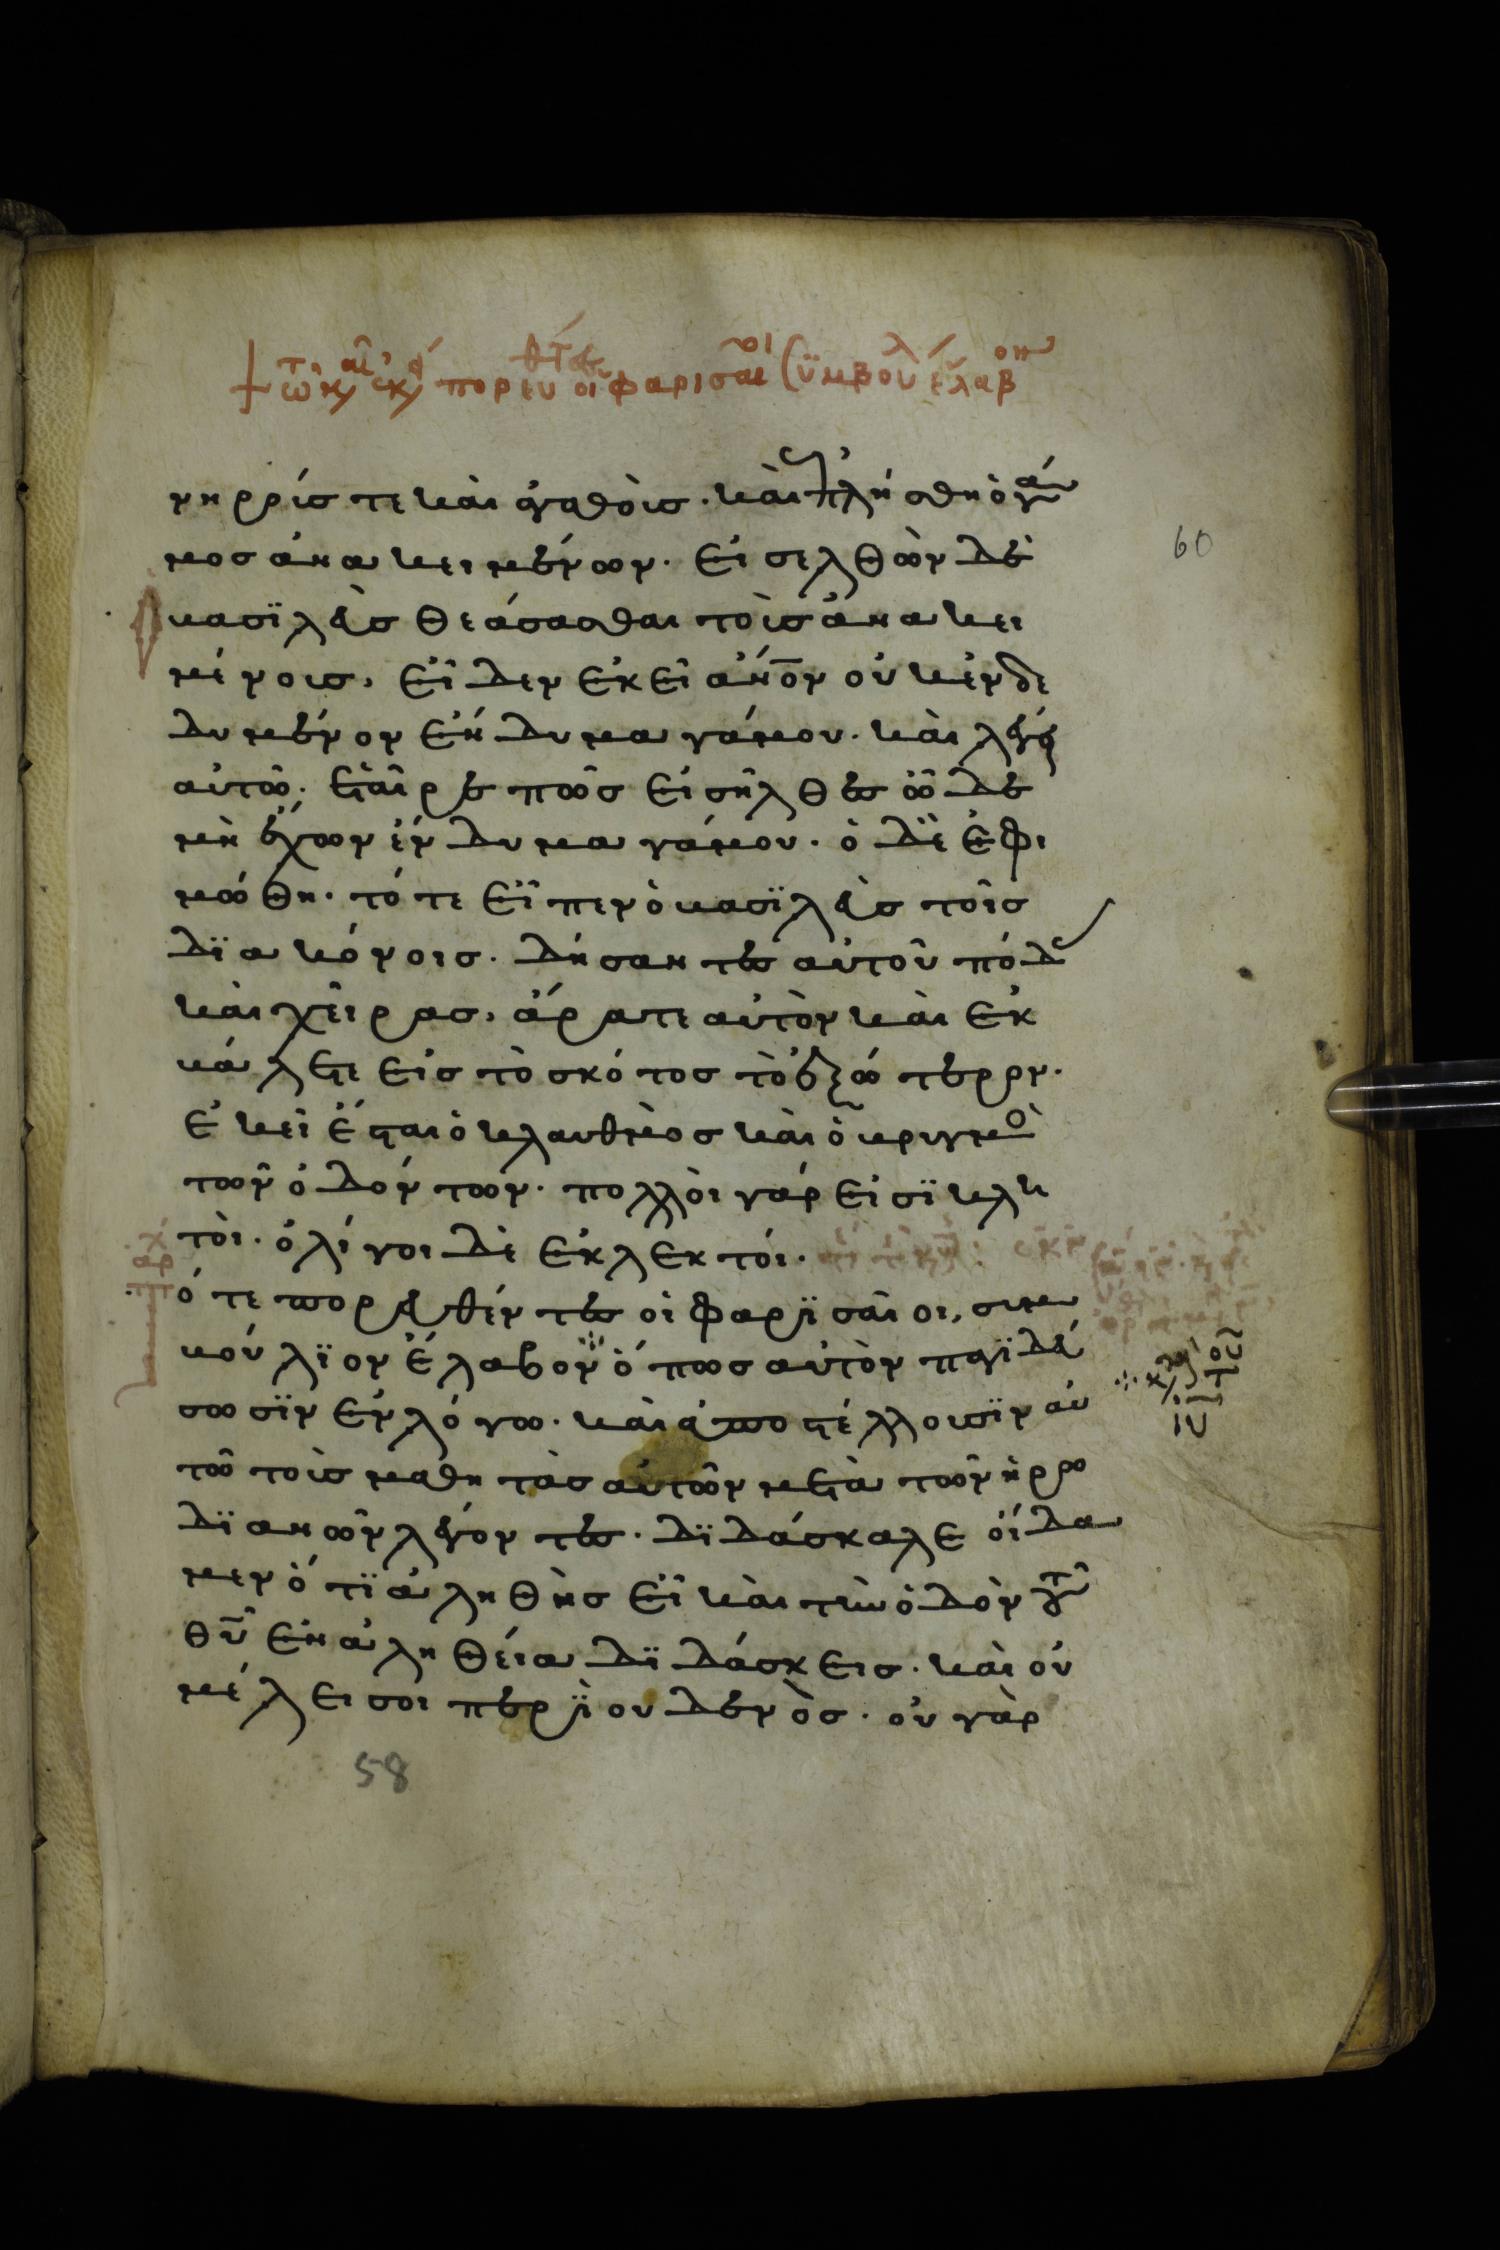 τῶ καιρῶ ἐκείνω πορευθέντες οἱ φαρισαῖοι συμβούλ ἔλαβον
νηρούς τε καὶ ἀγαθούς· καὶ ἐπλήσθη ὁ γά
μος ἀνακειμένων· εἰσελθὼν δὲ ὁ
βασϊλεὺς θεάσασθαι τοὺς ἀνακει
μένους, εἶδεν ἐκεῖ ἄνον οὐκ ἐνδε
δυμένον ἔνδυμα γάμου· καὶ λέγει
αὐτῶ· ἑταῖρε πῶς εἰσῆλθες ὧδε
μὴ ἔχων ἔνδυμα γάμου· ὁ δὲ ἐφι
μώθη· τότε εἶπεν ὁ βασϊλεὺς τοῖς
δϊακόνοις· δήσαντες αὐτοῦ πόδας
καὶ χεῖρας, ἄρατε αὐτὸν καὶ ἐκ
βάλετε εἰς τὸ σκότος τὸ ἐξώτερον·
ἐκεῖ ἔσται ὁ κλαυθμὸς καὶ ὁ βρυγμὸ
τῶν ὀδόντων· πολλοὶ γάρ εἰσϊ κλη
τοὶ· ὀλίγοι δὲ ἐκλεκτόι·
ὅτε πορευθέντες οἱ φαρϊσαῖοι, συμ
βούλϊον ἔλαβον ὅπως αὐτὸν παγϊδεύ
σωσϊν ἐν λόγω· καὶ ἀποστέλλουσϊν αὐ
κατὰ τοῦ
ιυ
τῶ τοὺς μαθητὰς αὐτῶν μετὰ τῶν ἡρω
δϊανῶν λέγοντες· δϊδάσκαλε οἴδα
μεν ὅτϊ ἀληθὴς εἶ καὶ τὴν ὁδὸν τοῦ
θυ ἐν ἀληθεία δϊδάσκεις· καὶ οὐ
μέλει σοι περϊ οὐδενὸς· οὐ γὰρ
60
58